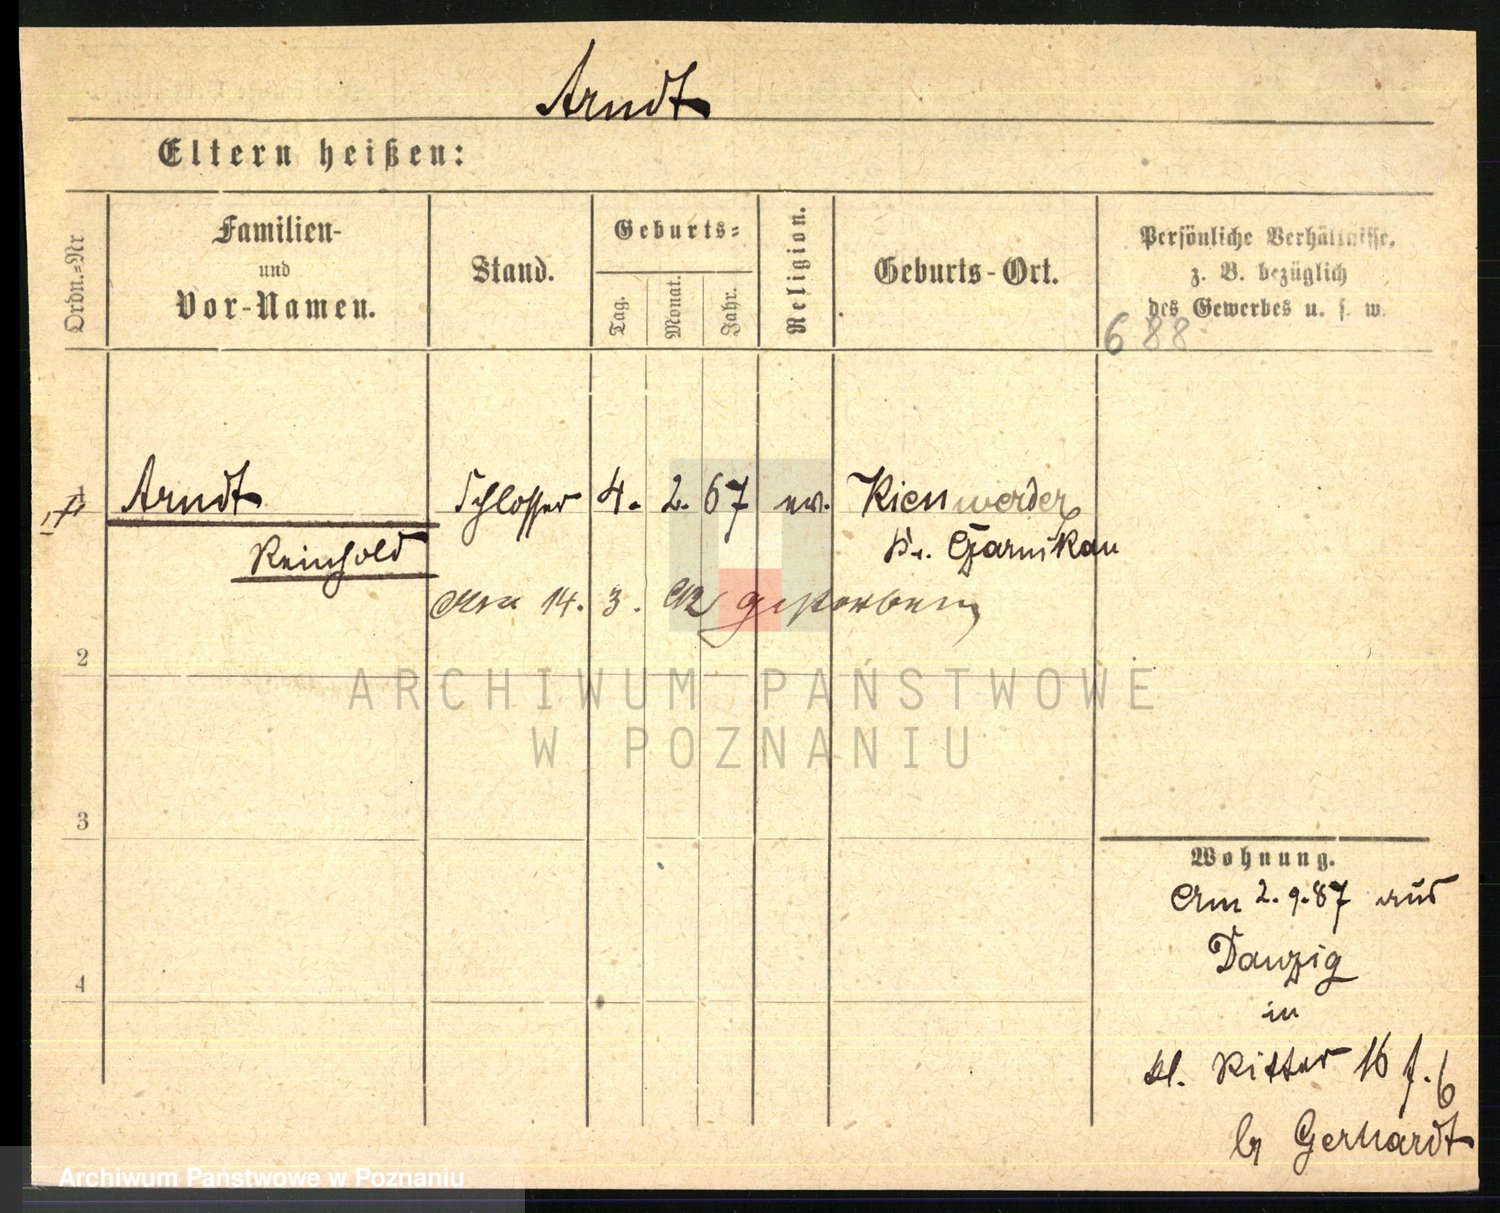 Arndt
Eltern heißen:
Ordn.=Nr
Familien-
und
Vor-Namen.
Stand.
Geburts=
Tag.
Monat.
Jahr.
Religion.
Geburts-Ort.
Persönliche Verhältnisse,
z. B. bezüglich
des Gewerbes u. s. w.
688
1 Arndt Schlosser 4. 2. 67 ev. Kienwerder
Reinhold Kr. Czarnikau
Am 14. 3. 92 gestorben
2
ARCHIWUM PAŃSTWOWE
W POZNANIU
3
Wohnung.
Am 2. 9. 87 aus
Danzig
4
in
kl. Ritter 16 f. 6
b Gerhardt
Archiwum Państwowe w Poznaniu